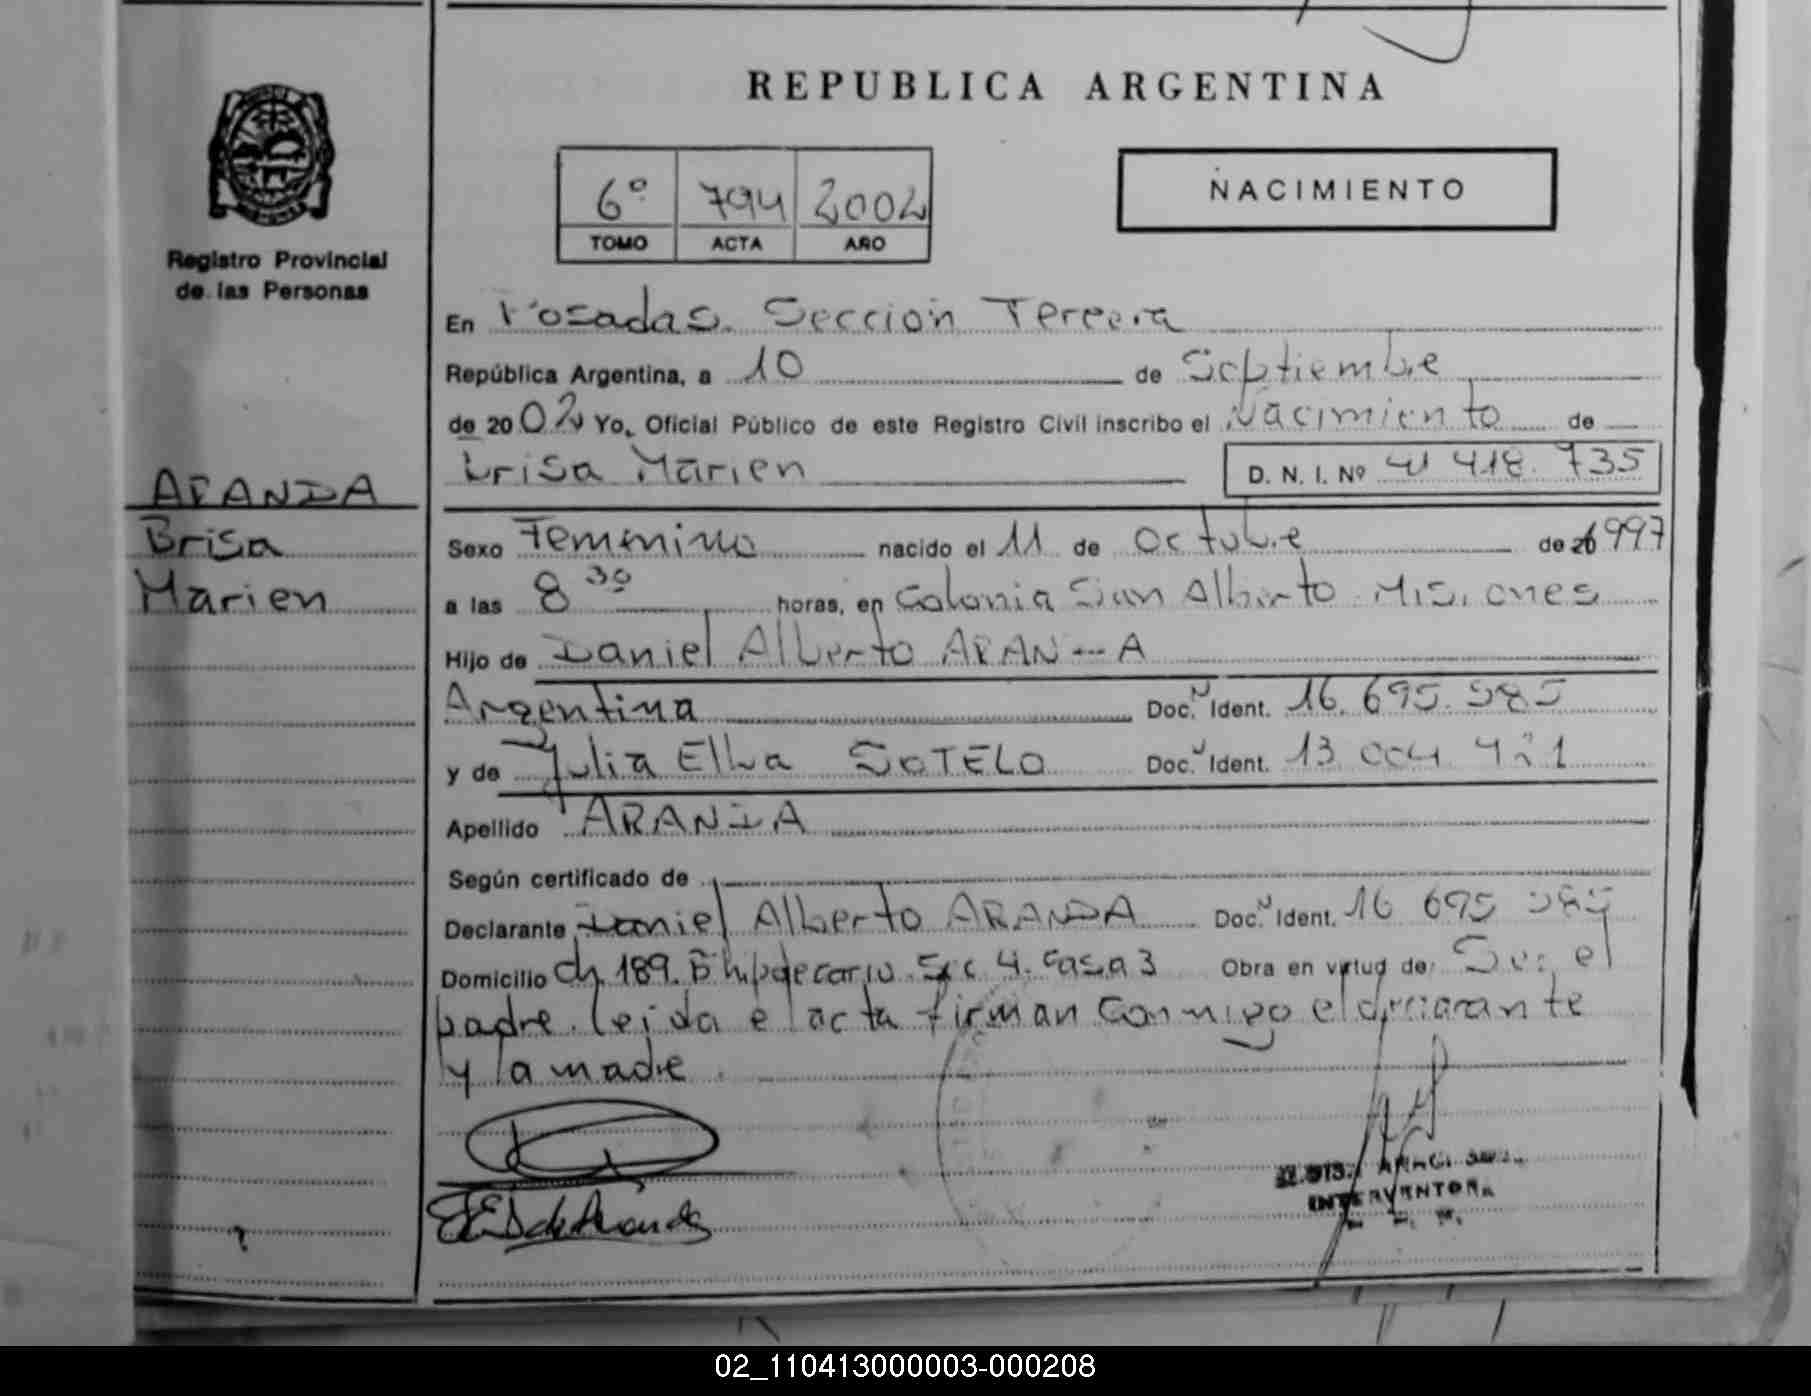 REPUBLICA ARGENTINA
6º 794 2002
TOMO ACTA AÑO
NACIMIENTO
Registro Provincial
de las Personas
En Posadas. Sección Tercera
República Argentina, a 10 de Septiembre
de 2002 Yo, Oficial Público de este Registro Civil inscribo el Nacimiento de
Brisa Marien D. N. I. Nº 41 418.735
ARANDA
Brisa
Marien
Sexo Femenino nacido el 11 de Octubre de 1997
a las 8 30 horas, en Colonia San Alberto Misiones
Hijo de Daniel Alberto ARANDA
Argentina Doc. Ident. 16.695.985
y de Julia Elba SOTELO Doc. Ident. 13 004
Apellido ARANDA
Según certificado de
Declarante Daniel Alberto ARANDA Doc. Ident. 16 695 985
Domicilio Ch. 189. B hipotecario Sec 4. casa 3 Obra en virtud de: Ser el
padre. leida el acta firman conmigo el declarante
y la madre
INTERVENTORA
02_110413000003-000208